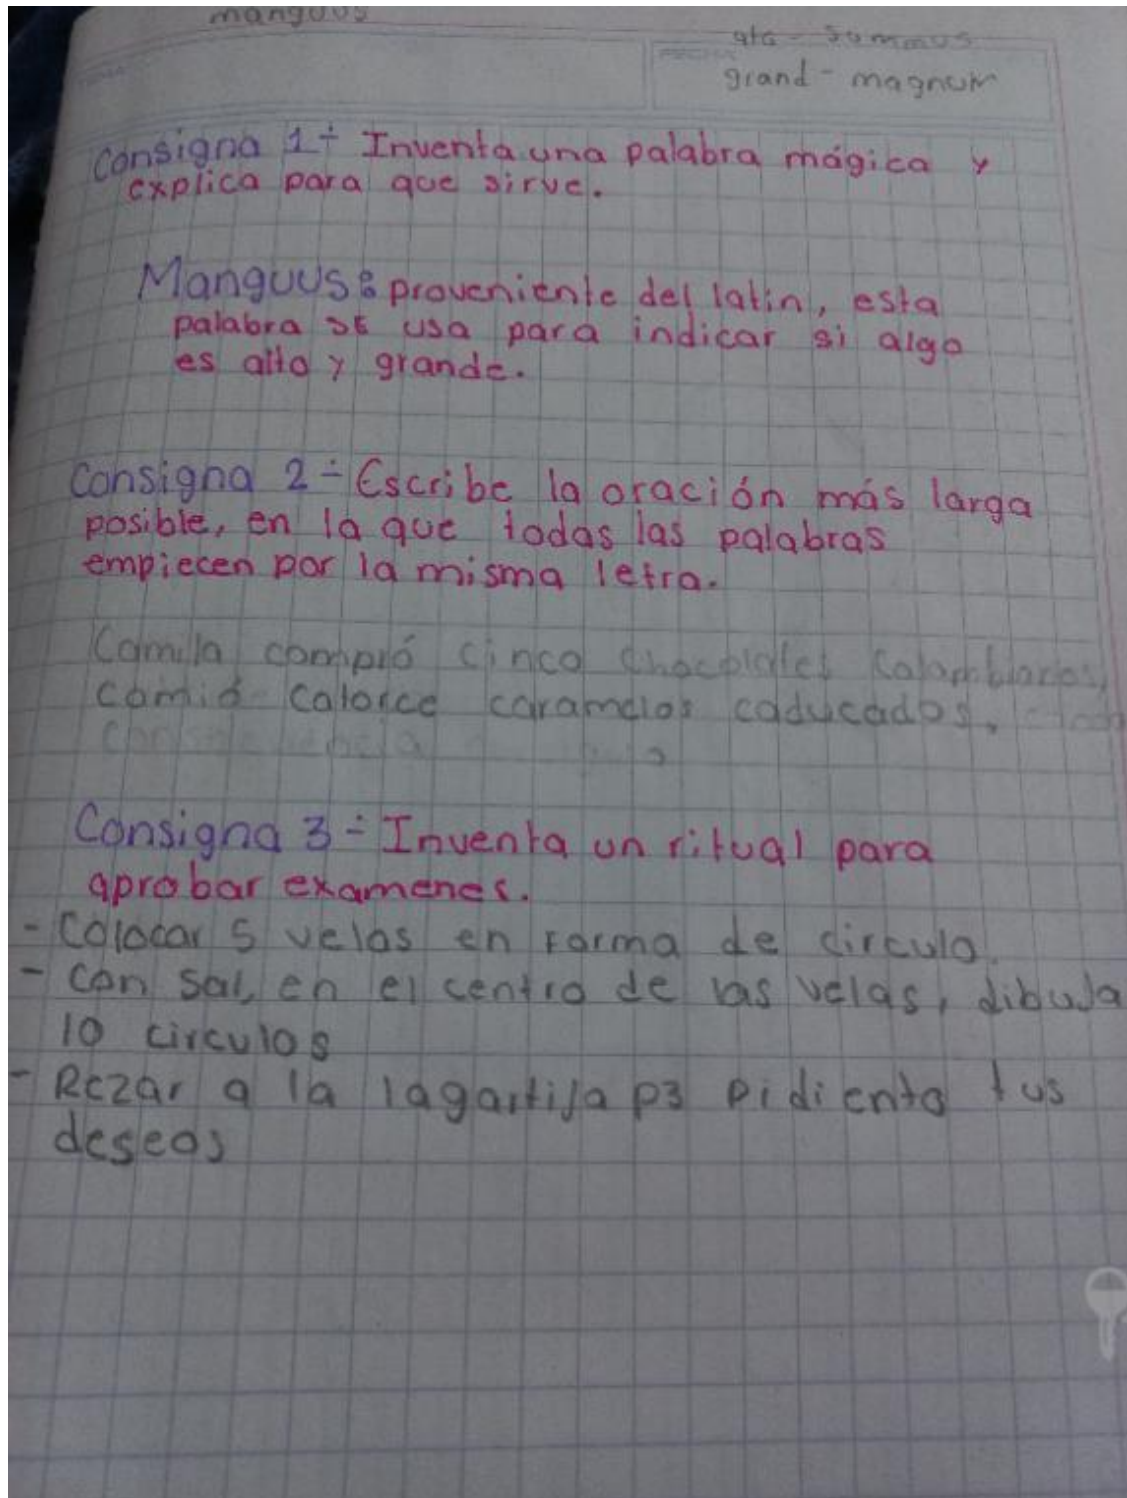 manguus
alto - summus
grand - magnum
Consigna 1÷ Inventa una palabra mágica y
explica para que sirve.
Manguus: proveniente del latin, esta
palabra se usa para indicar si algo
es alto y grande.
Consigna 2÷ Escribe la oración más larga
posible, en la que todas las palabras
empiecen por la misma letra.
Camila compró cinco chocolates colombianos,
comió catorce caramelos caducados,
Consigna 3÷ Inventa un ritual para
aprobar examenes.
- Colocar 5 velas en forma de circulo.
- Con sal, en el centro de las velas, dibuja
10 circulos
- Rezar a la lagartija p3 pidiento tus
deseos